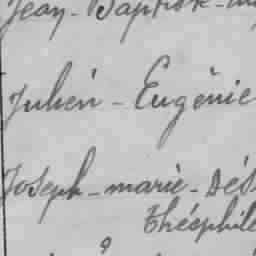 Jean-Baptiste-
Julien-Eugènie
Joseph-marie-Dés
théophile
9